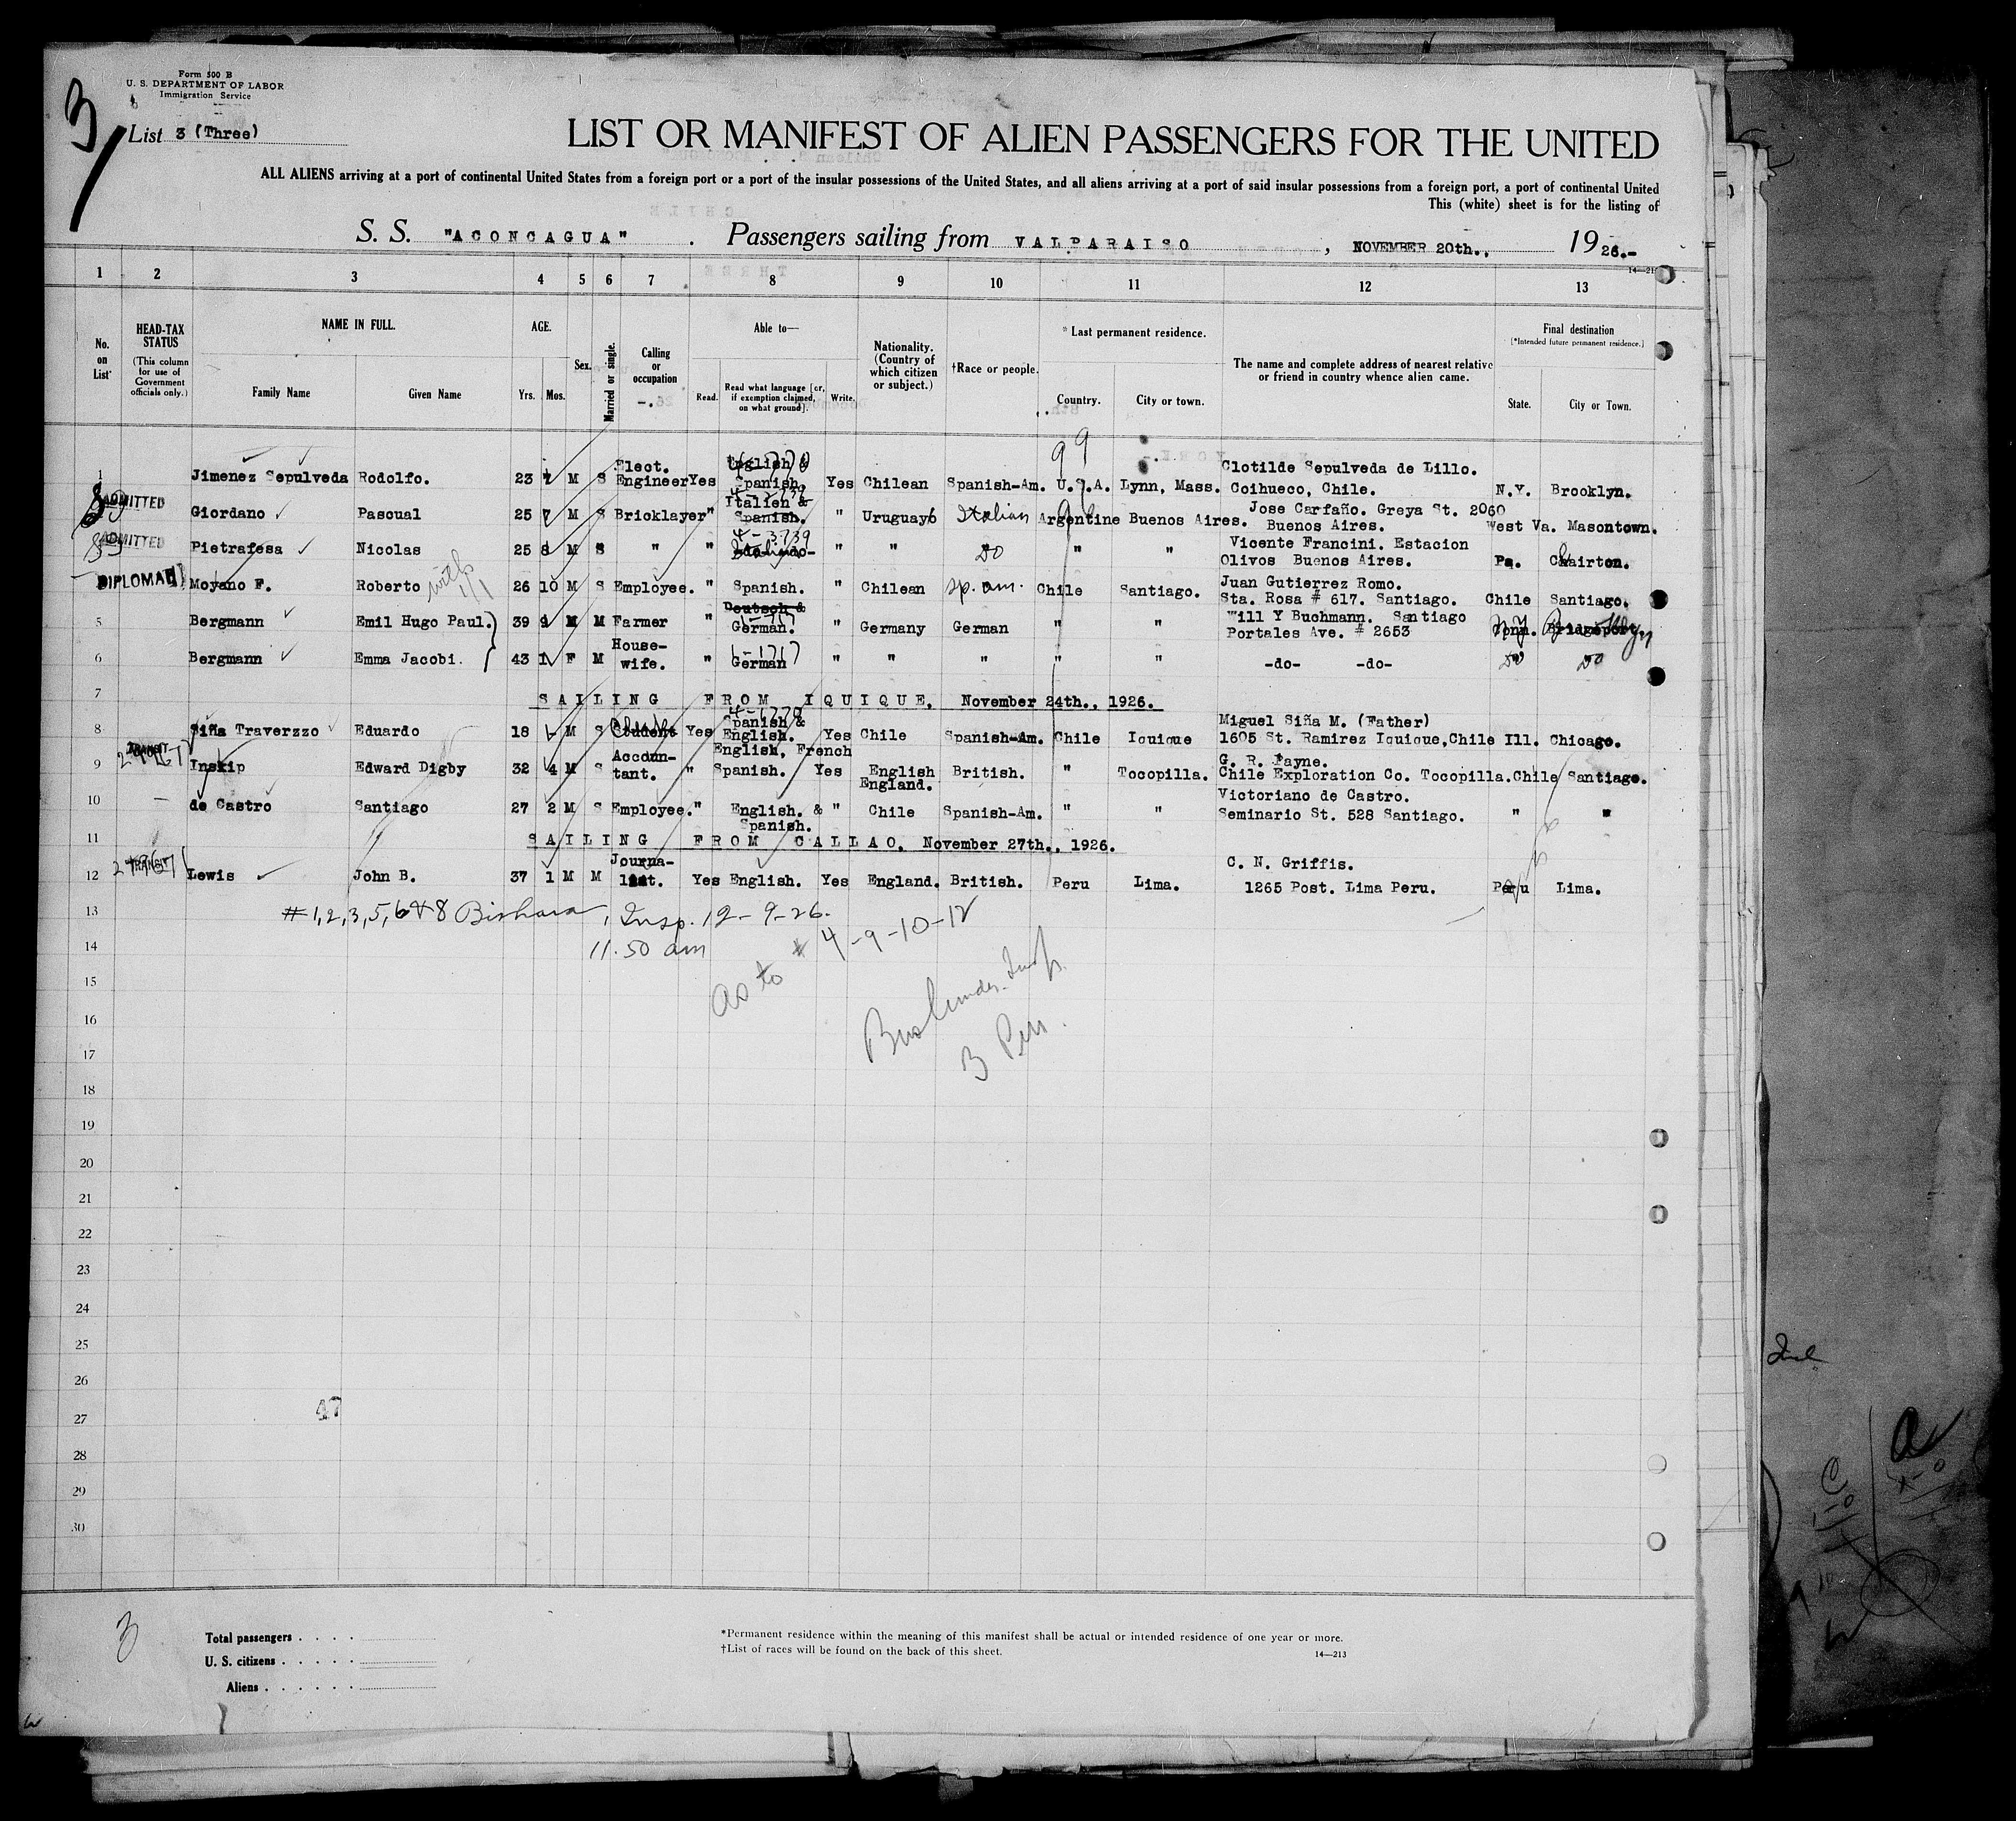 Form 500 B
U. S. DEPARTMENT OF LABOR
Immigration Service
3
List 3 (Three)
LIST OR MANIFEST OF ALIEN PASSENGERS FOR THE UNITED
ALL ALIENS arriving at a port of continental United States from a foreign port or a port of the insular possessions of the United States, and all aliens arriving at a port of said insular possessions from a foreign port, a port of continental United
This (white) sheet is for the listing of
S. S. "ACONCAGUA" . Passengers sailing from VALPARAISO , NOVEMBER 20th., 1926.-
1 2 3 4 5 6 7 8 9 10 11 12 13
No. on List
HEAD-TAX STATUS (This column for use of Government officials only.)
NAME IN FULL. Family Name Given Name
AGE. Yrs. Mos.
Sex.
Married or single.
Calling or occupation
Able to— Read. Read what language [or, if exemption claimed, on what ground]. Write.
Nationality. (Country of which citizen or subject.)
†Race or people.
*Last permanent residence. Country. City or town.
The name and complete address of nearest relative or friend in country whence alien came.
Final destination (*Intended future permanent residence.) State. City or Town.
1 Jimenez Sepulveda Rodolfo. 23 7 M S Elect. Engineer Yes English & Spanish. Yes Chilean Spanish-Am. U.S.A. Lynn, Mass. Clotilde Sepulveda de Lillo. Coihueco, Chile. N.Y. Brooklyn.
ADMITTED Giordano Pascual 25 7 M S Bricklayer " Italien & Spanish. " Uruguay Italian Argentine Buenos Aires. Jose Carfaño. Greya St. 2060 Buenos Aires. West Va. Masontown.
ADMITTED Pietrafesa Nicolas 25 8 M S " " " " Do " " Vicente Francini. Estacion Olivos Buenos Aires. Pa. Clairton.
DIPLOMAT Moyano F. Roberto 26 10 M S Employee. " Spanish. " Chilean Sp. am. Chile Santiago. Juan Gutierrez Romo. Sta. Rosa # 617. Santiago. Chile Santiago.
5 Bergmann Emil Hugo Paul. 39 M M Farmer " Deutsch & German. " Germany German " " Will Y Buchmann. Santiago Portales Ave. # 2653 Conn. Bridgeport N.Y.
6 Bergmann Emma Jacobi. 43 1 F M House-wife. " German " " " " " -do- -do- Do Do
7 SAILING FROM IQUIQUE, November 24th., 1926.
8 Siña Traverzzo Eduardo 18 - M S Student Yes Spanish & English. Yes Chile Spanish-Am. Chile Iquique Miguel Siña M. (Father) 1605 St. Ramirez Iquique, Chile Ill. Chicago.
TRANSIT
9 Inskip Edward Digby 32 4 M S Accoun-tant. " English, French Spanish. Yes English England. British. " Tocopilla. G. R. Payne. Chile Exploration Co. Tocopilla. Chile Santiago.
10 de Castro Santiago 27 2 M S Employee. " English. & Spanish. " Chile Spanish-Am. " " Victoriano de Castro. Seminario St. 528 Santiago. " "
11 SAILING FROM CALLAO. November 27th., 1926.
TRANSIT
12 Lewis John B. 37 1 M M Journa-list. Yes English. Yes England. British. Peru Lima. C. N. Griffis. 1265 Post. Lima Peru. Peru Lima.
13 #1,2,3,5,6 & 8 Bishara, Insp. 12-9-26.
14 11.50 am
As to # 4-9-10-12
15
16
17
18
19
20
21
22
23
24
25
26
27
28
29
30
47
3
Total passengers . . . .
U. S. citizens . . . . .
Aliens . . . . . .
*Permanent residence within the meaning of this manifest shall be actual or intended residence of one year or more.
†List of races will be found on the back of this sheet.
14—213